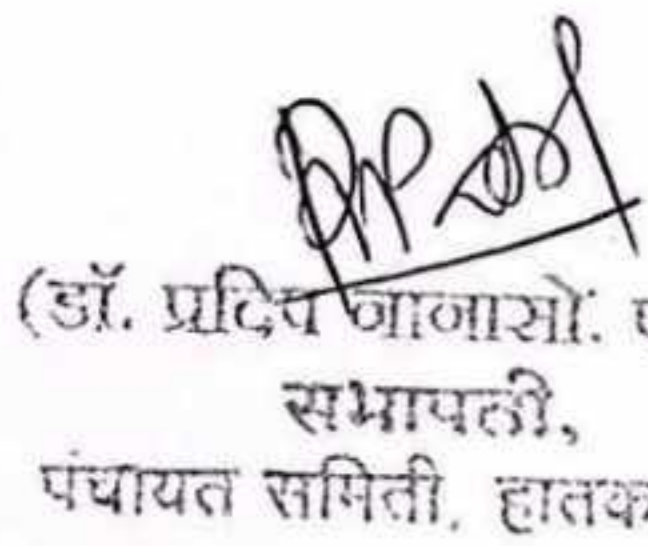 (डॉ. प्रदिप नानासों.
सभापती,
पंचायत समिती.